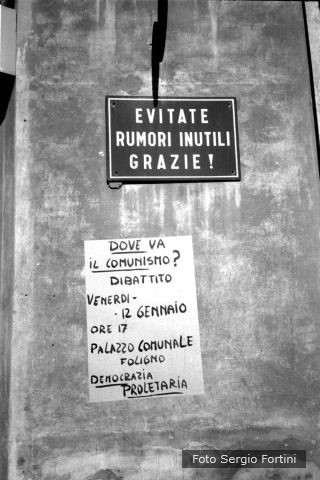 EVITATE
RUMORI INUTILI
GRAZIE!
DOVE VA
IL COMUNISMO?
DIBATTITO
VENERDI-
- 12 GENNAIO
ORE 17
PALAZZO COMUNALE
FOLIGNO
DEMOCRAZIA
PROLETARIA
Foto Sergio Fortini